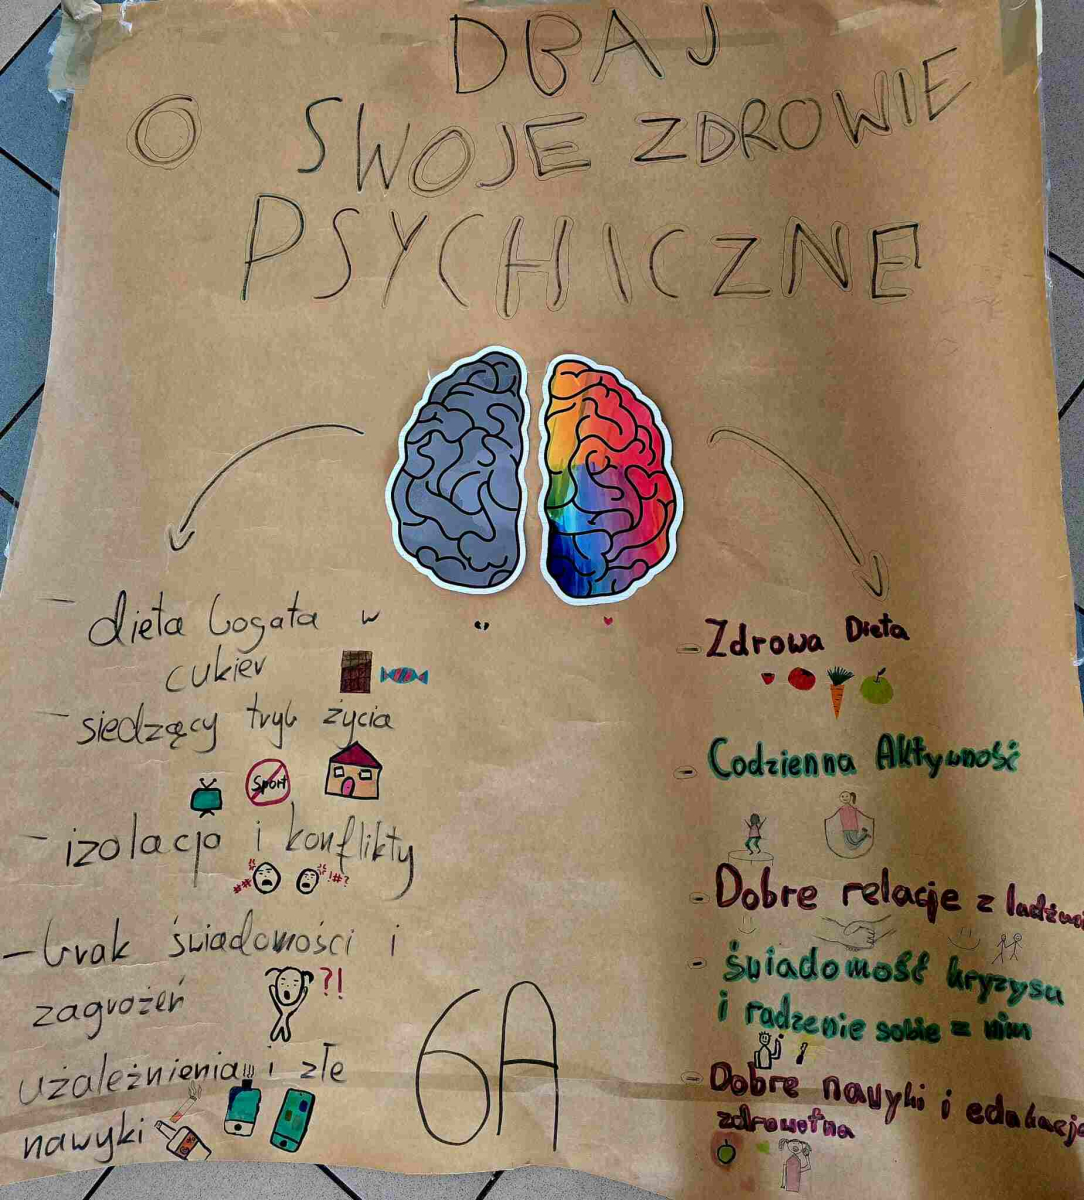 DBAJ
O SWOJE ZDROWIE
PSYCHICZNE
- dieta bogata w
cukier
- siedzący tryb życia
Sport
- izolacja i konflikty
##
*!#?
- brak świadomości i
zagrożeń
?!
uzależnienia i złe
nawyki
6A
- Zdrowa Dieta
- Codzienna Aktywność
- Dobre relacje z
- świadomość kryzysu
i radzenie sobie z nim
- Dobre nawyki i edukacja
zdrowotna